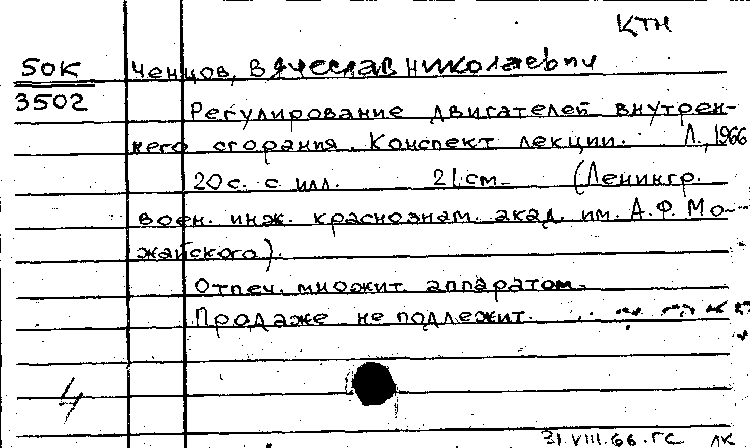 КТН
50К Ченцов, Вячеслав Николаевич
3502
Регулирование двигателей внутрен-
него сгорания. Конспект лекции. Л., 1966
20 с. с илл. 21 см. (Ленингр.
воен. инж. краснознам. акад. им. А.Ф. Мо-
жайского).
Отпеч. множит. аппаратом.
Продаже не подлежит.
4
31.VIII.66. ГС ЛК